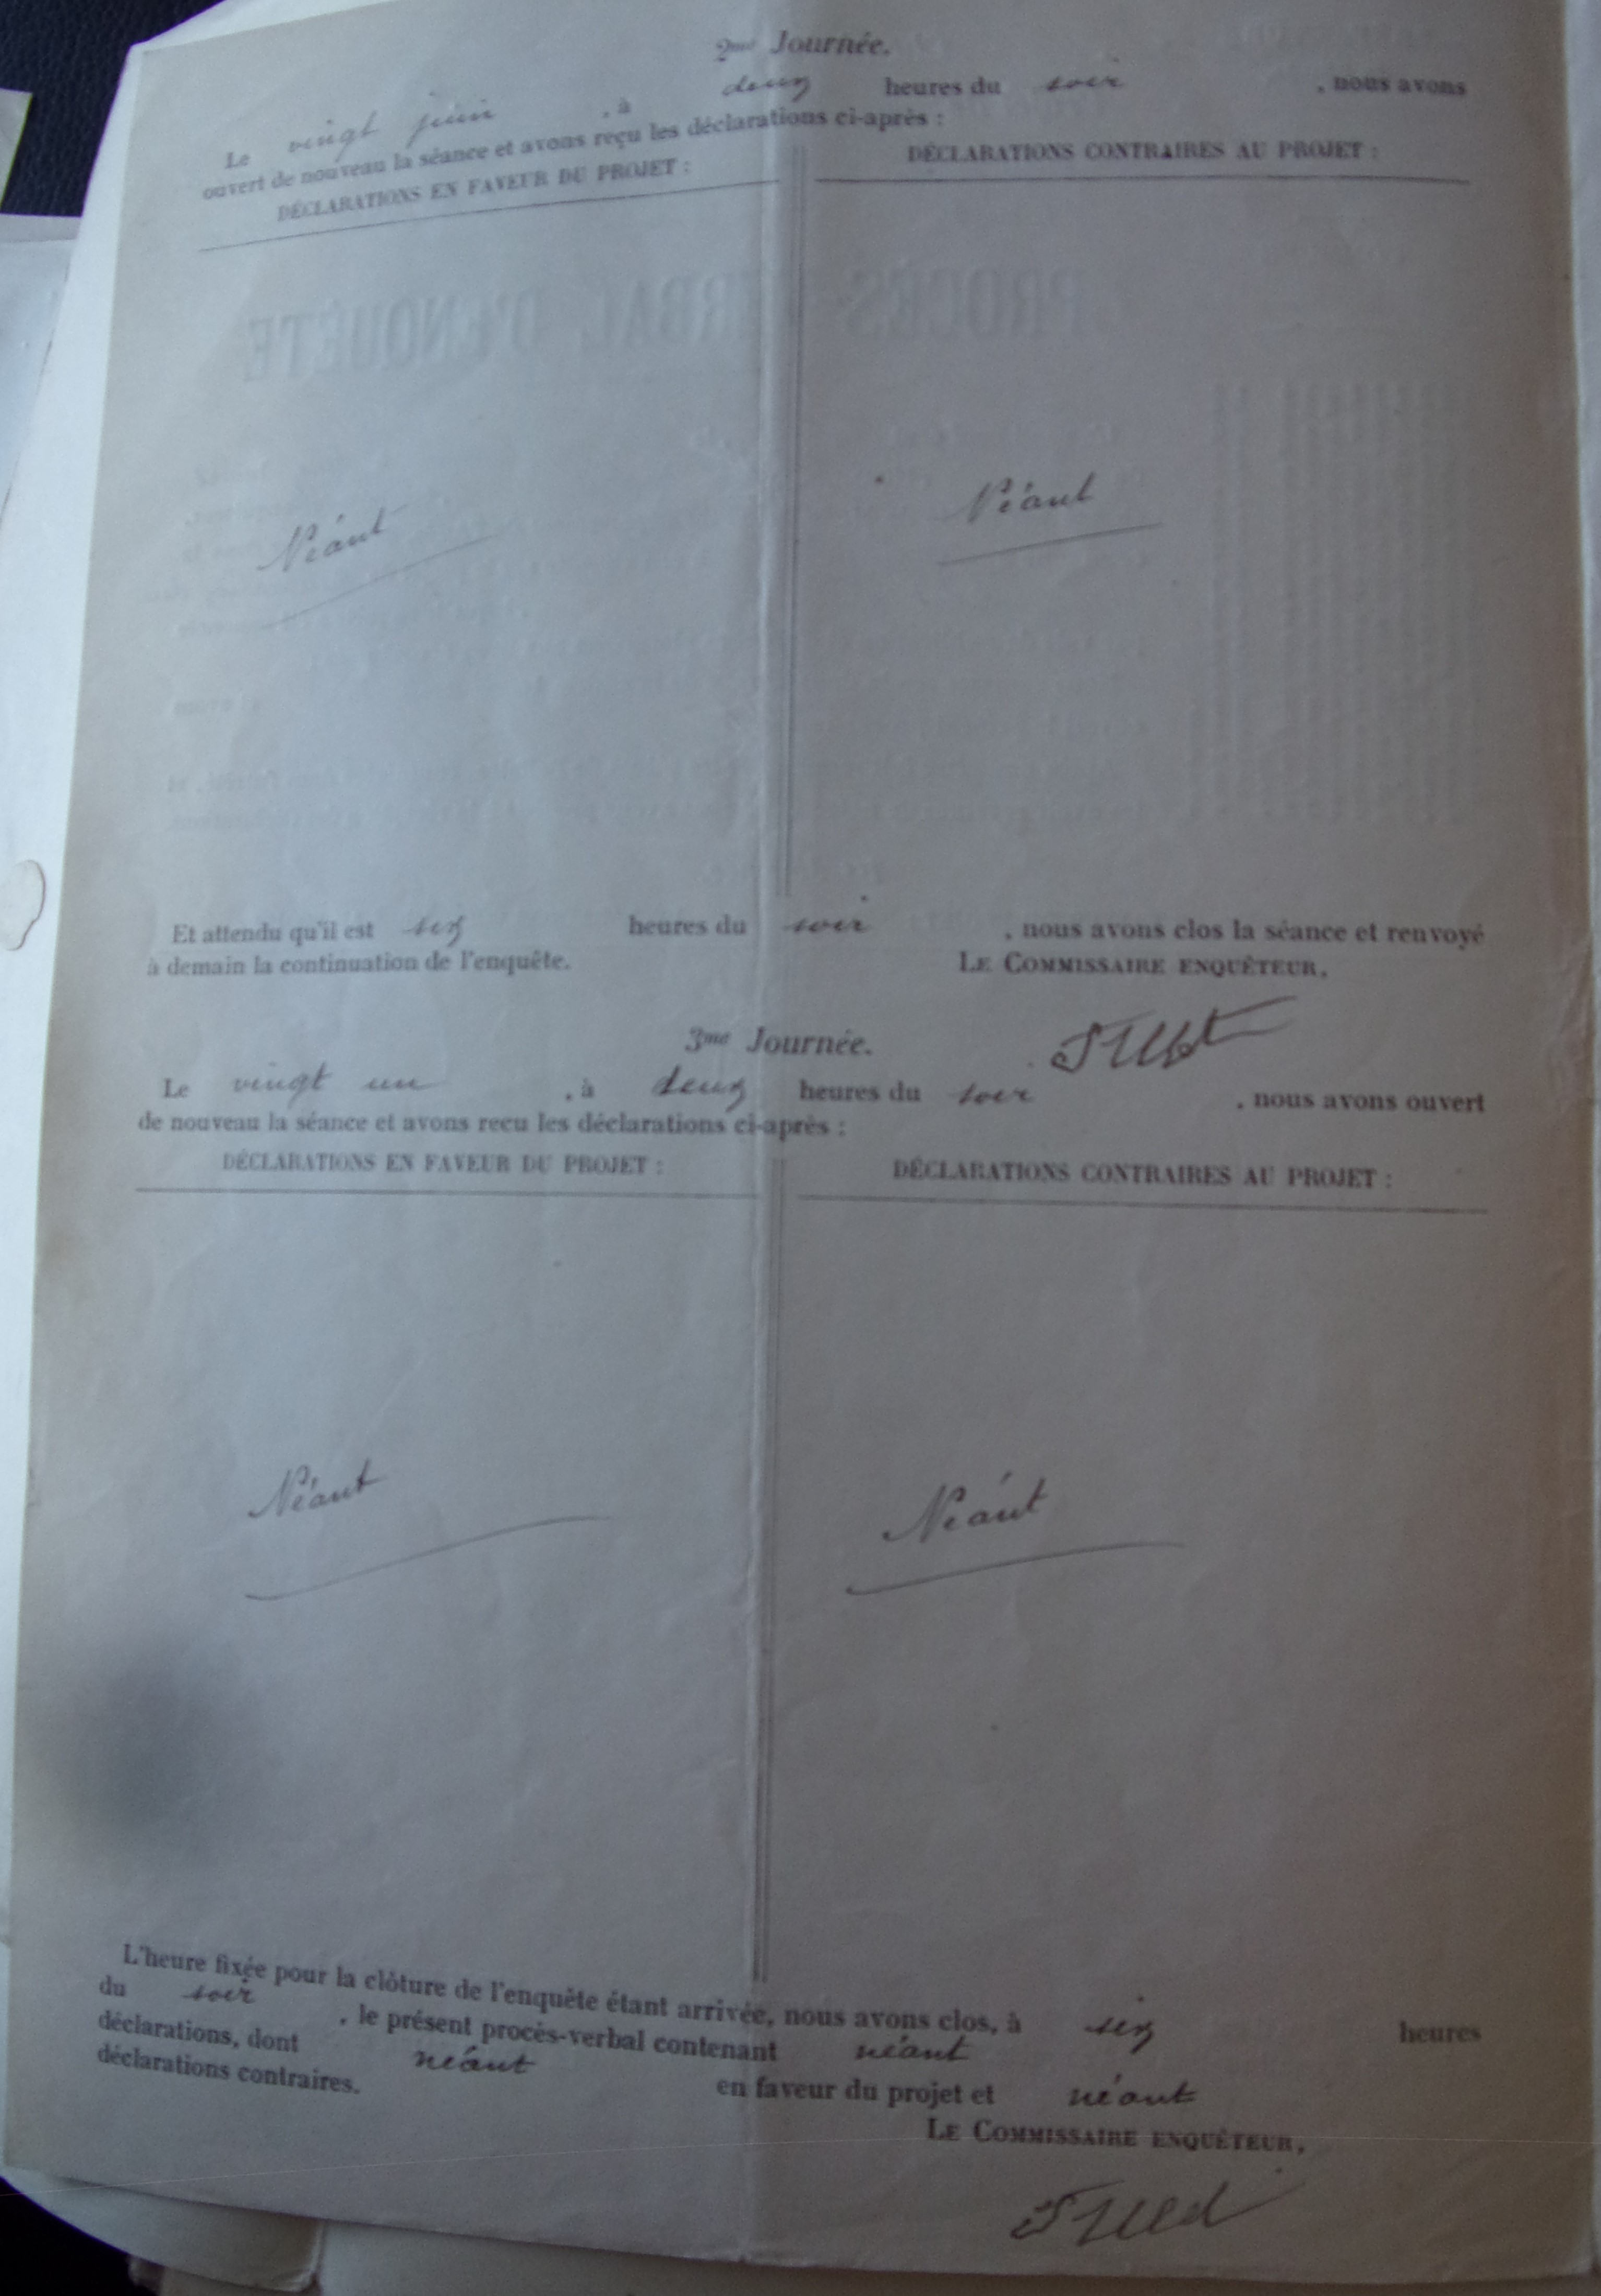 2me Journée.
Le vingt juin , à deux heures du soir , nous avons
ouvert de nouveau la séance et avons reçu les déclarations ci-après :
DÉCLARATIONS EN FAVEUR DU PROJET :
DÉCLARATIONS CONTRAIRES AU PROJET :
PROCÈS-VERBAL D'ENQUÊTE
Néant
Néant
Et attendu qu'il est six heures du soir , nous avons clos la séance et renvoyé
à demain la continuation de l'enquête.
LE COMMISSAIRE ENQUÊTEUR,
3me Journée.
Le vingt un , à deux heures du soir , nous avons ouvert
de nouveau la séance et avons reçu les déclarations ci-après :
DÉCLARATIONS EN FAVEUR DU PROJET :
DÉCLARATIONS CONTRAIRES AU PROJET :
Néant
Néant
L'heure fixée pour la clôture de l'enquête étant arrivée, nous avons clos, à six heures
du soir , le présent procès-verbal contenant néant
déclarations, dont néant en faveur du projet et néant
déclarations contraires.
LE COMMISSAIRE ENQUÊTEUR,